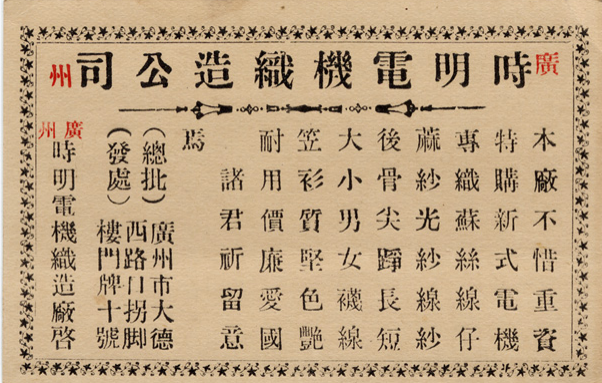 廣州時明電機織造公司
本廠不惜重資
特購新式電機
專織蘇絲線仔
蔴紗光紗線紗
後骨尖踭長短
大小男女襪線
笠衫質堅色艷
耐用價廉愛國
諸君祈留意
焉
(總批)廣州市大德
(發處)西路口拐脚
樓門牌十號
廣州時明電機織造廠啓